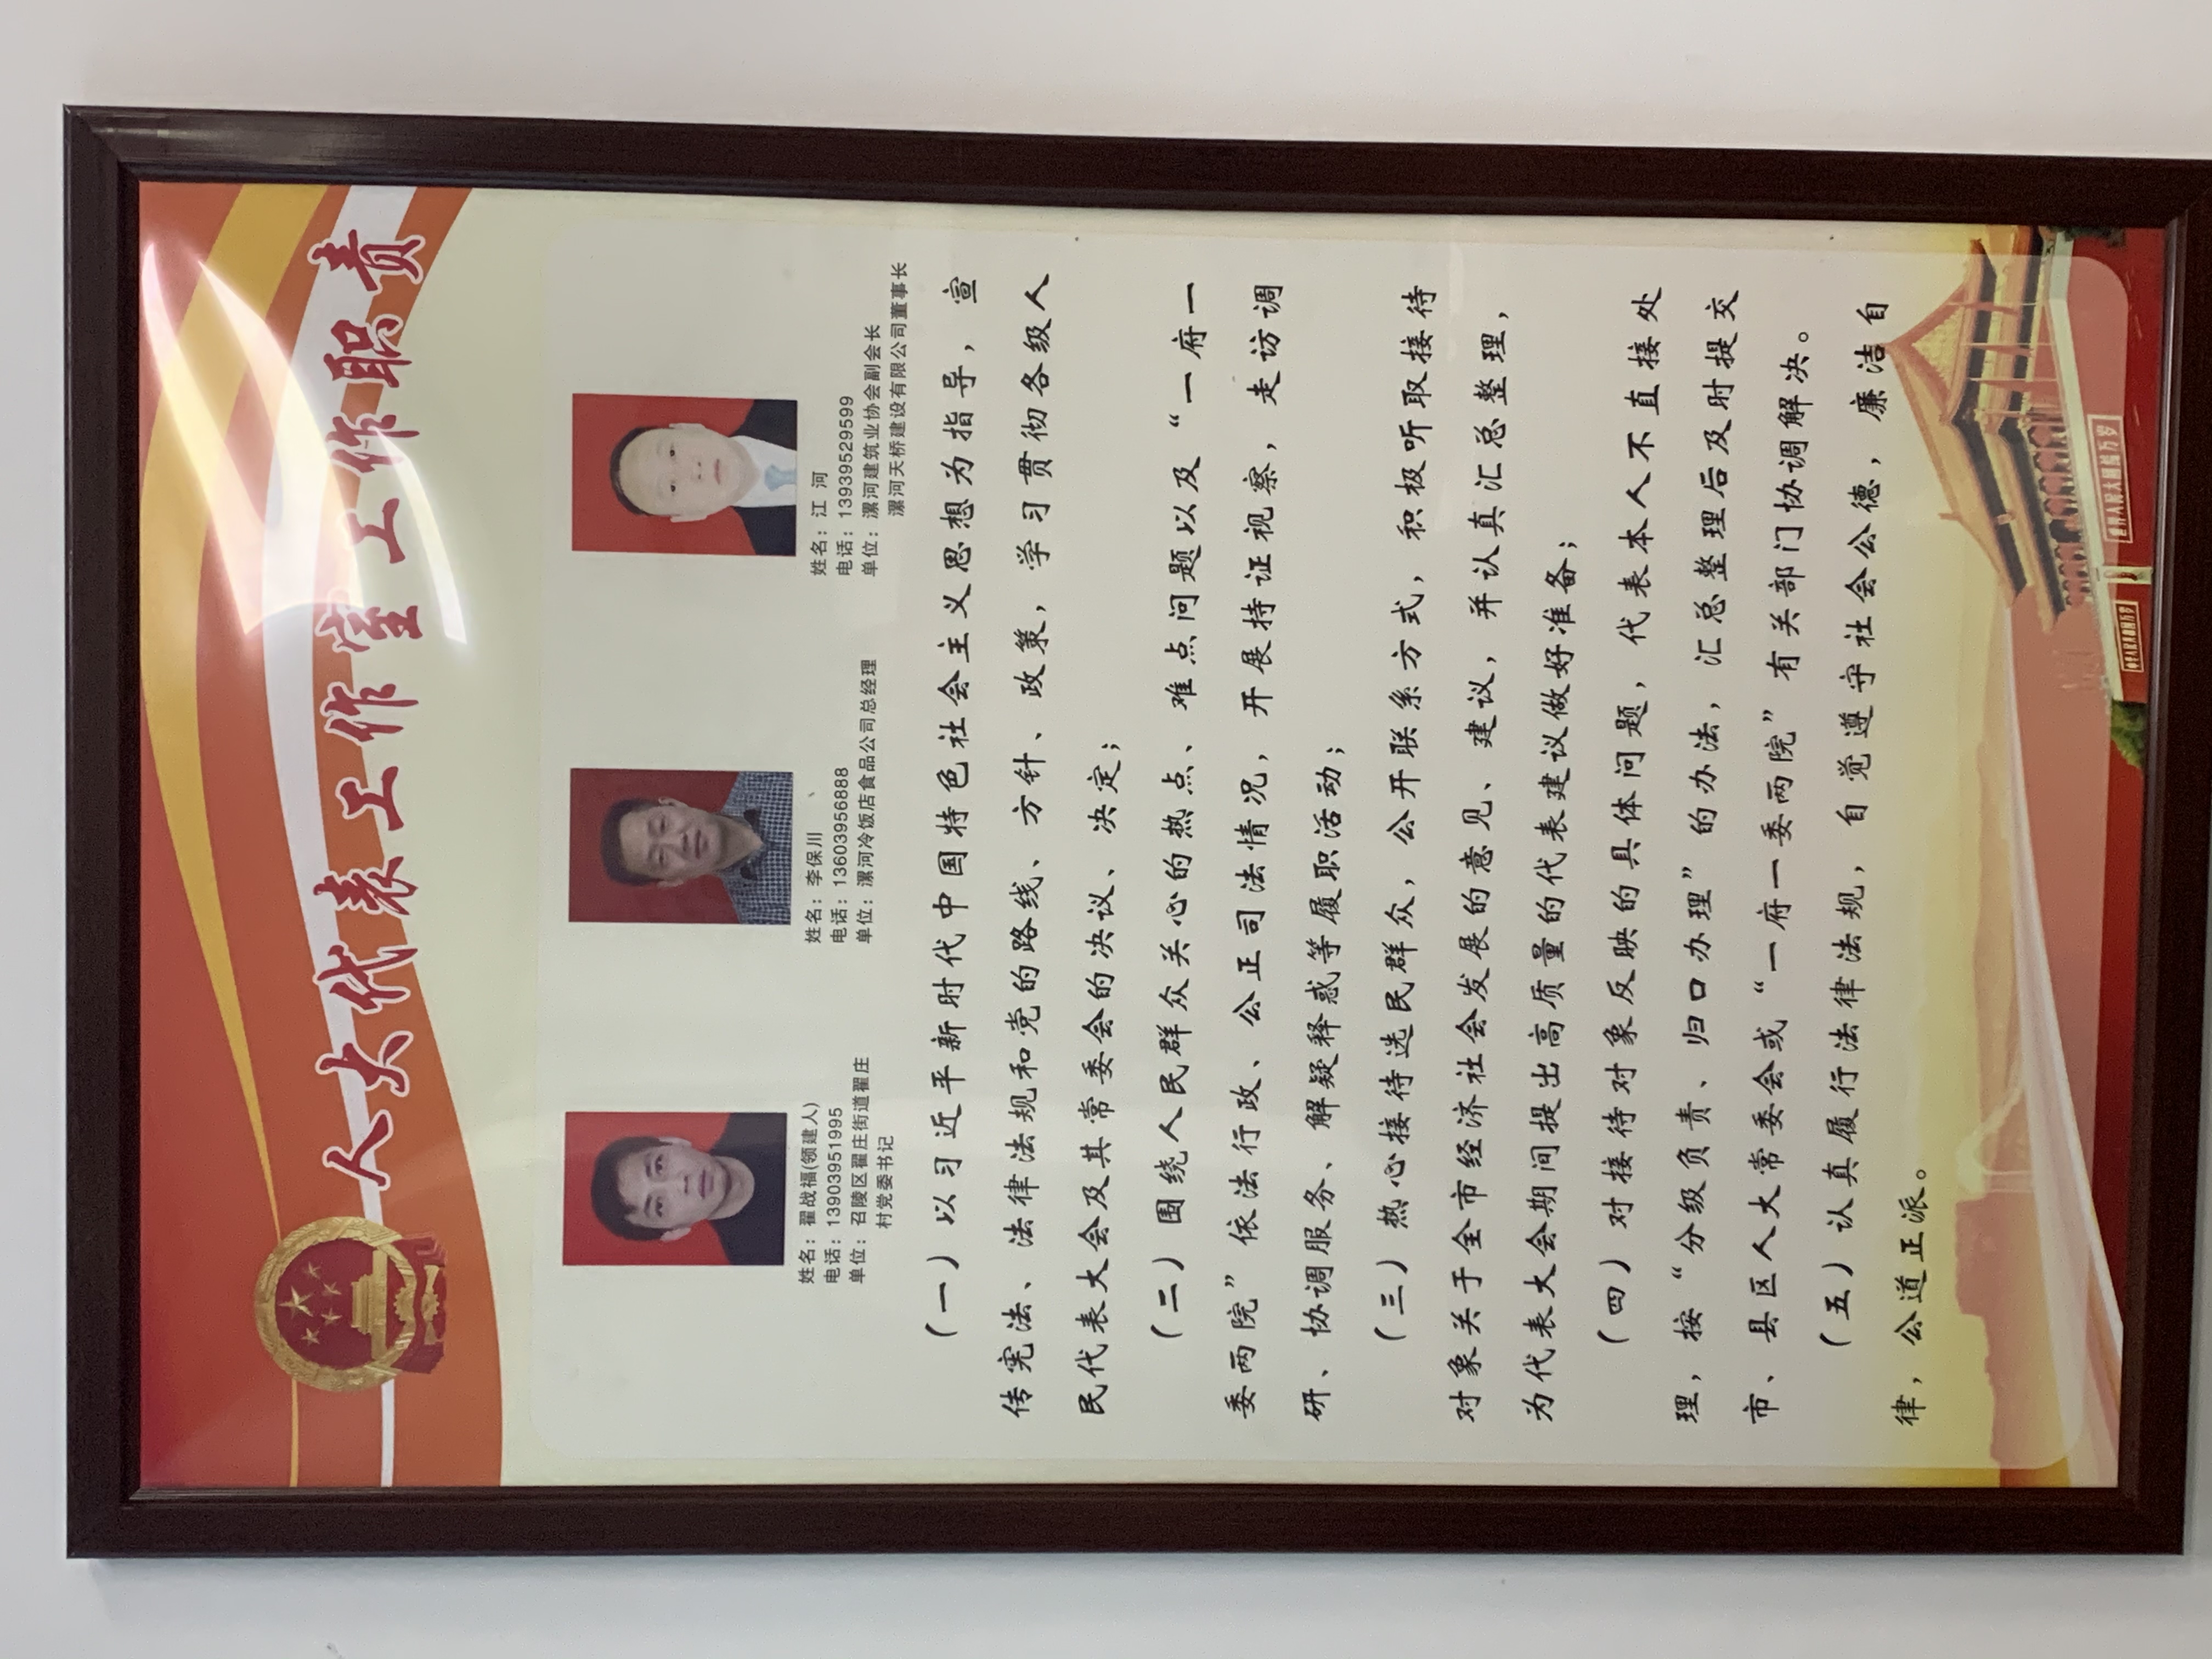 人大代表工作室工作职责
姓名：翟战福(领建人)
电话：13903951995
单位：召陵区翟庄街道翟庄
村党委书记
姓名：李保川
电话：13603956888
单位：漯河冷饭店食品公司总经理
姓名：江 河
电话：13939529599
单位：漯河建筑业协会副会长
漯河天桥建设有限公司董事长
（一）以习近平新时代中国特色社会主义思想为指导，宣
传宪法、法律法规和党的路线、方针、政策，学习贯彻各级人
民代表大会及其常委会的决议、决定；
（二）围绕人民群众关心的热点、难点问题以及“一府一
委两院”依法行政、公正司法情况，开展持证视察，走访调
研、协调服务、解疑释惑等履职活动；
（三）热心接待选民群众，公开联系方式，积极听取接待
对象关于全市经济社会发展的意见、建议，并认真汇总整理，
为代表大会期间提出高质量的代表建议做好准备；
（四）对接待对象反映的具体问题，代表本人不直接处
理，按“分级负责、归口办理”的办法，汇总整理后及时提交
市、县区人大常委会或“一府一委两院”有关部门协调解决。
（五）认真履行法律法规，自觉遵守社会公德，廉洁自
律，公道正派。
中华人民共和国万岁
世界人民大团结万岁